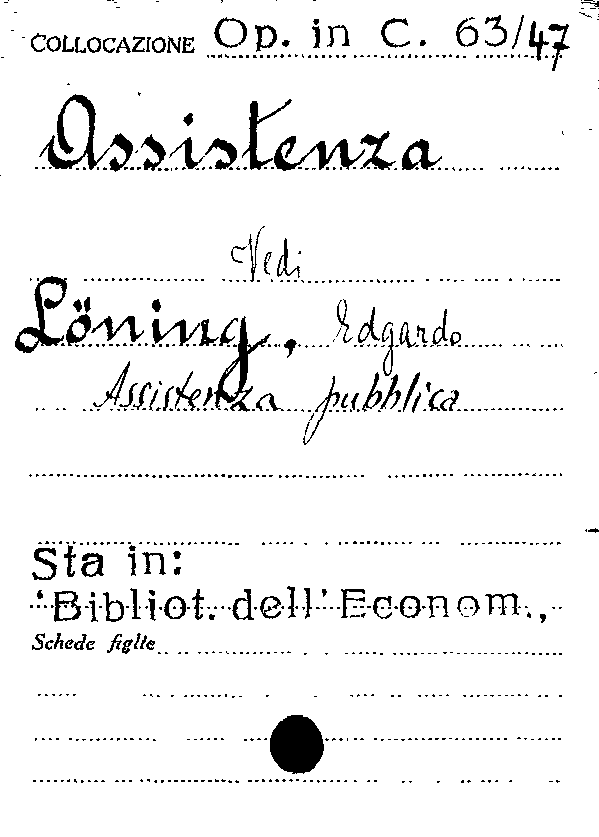 COLLOCAZIONE Op. in C. 63/47
Assistenza
Vedi
Löning, Edgardo
Assistenza pubblica
Sta in:
'Bibliot. dell' Econom.,
Schede figlie